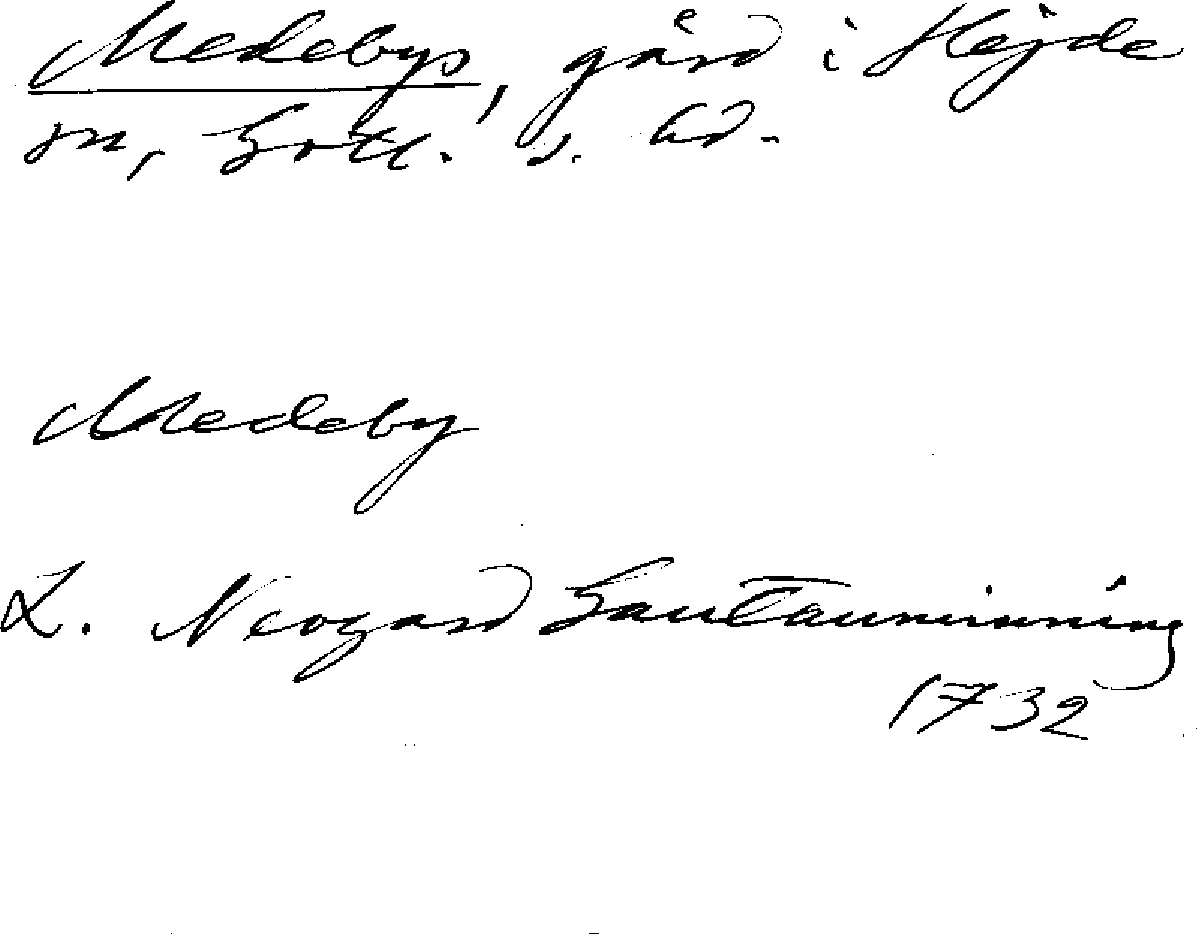 Medebys, gård i Hejde
sn, Gotl. s. hd.
Medeby
L. Neogard Gautauminning
1732